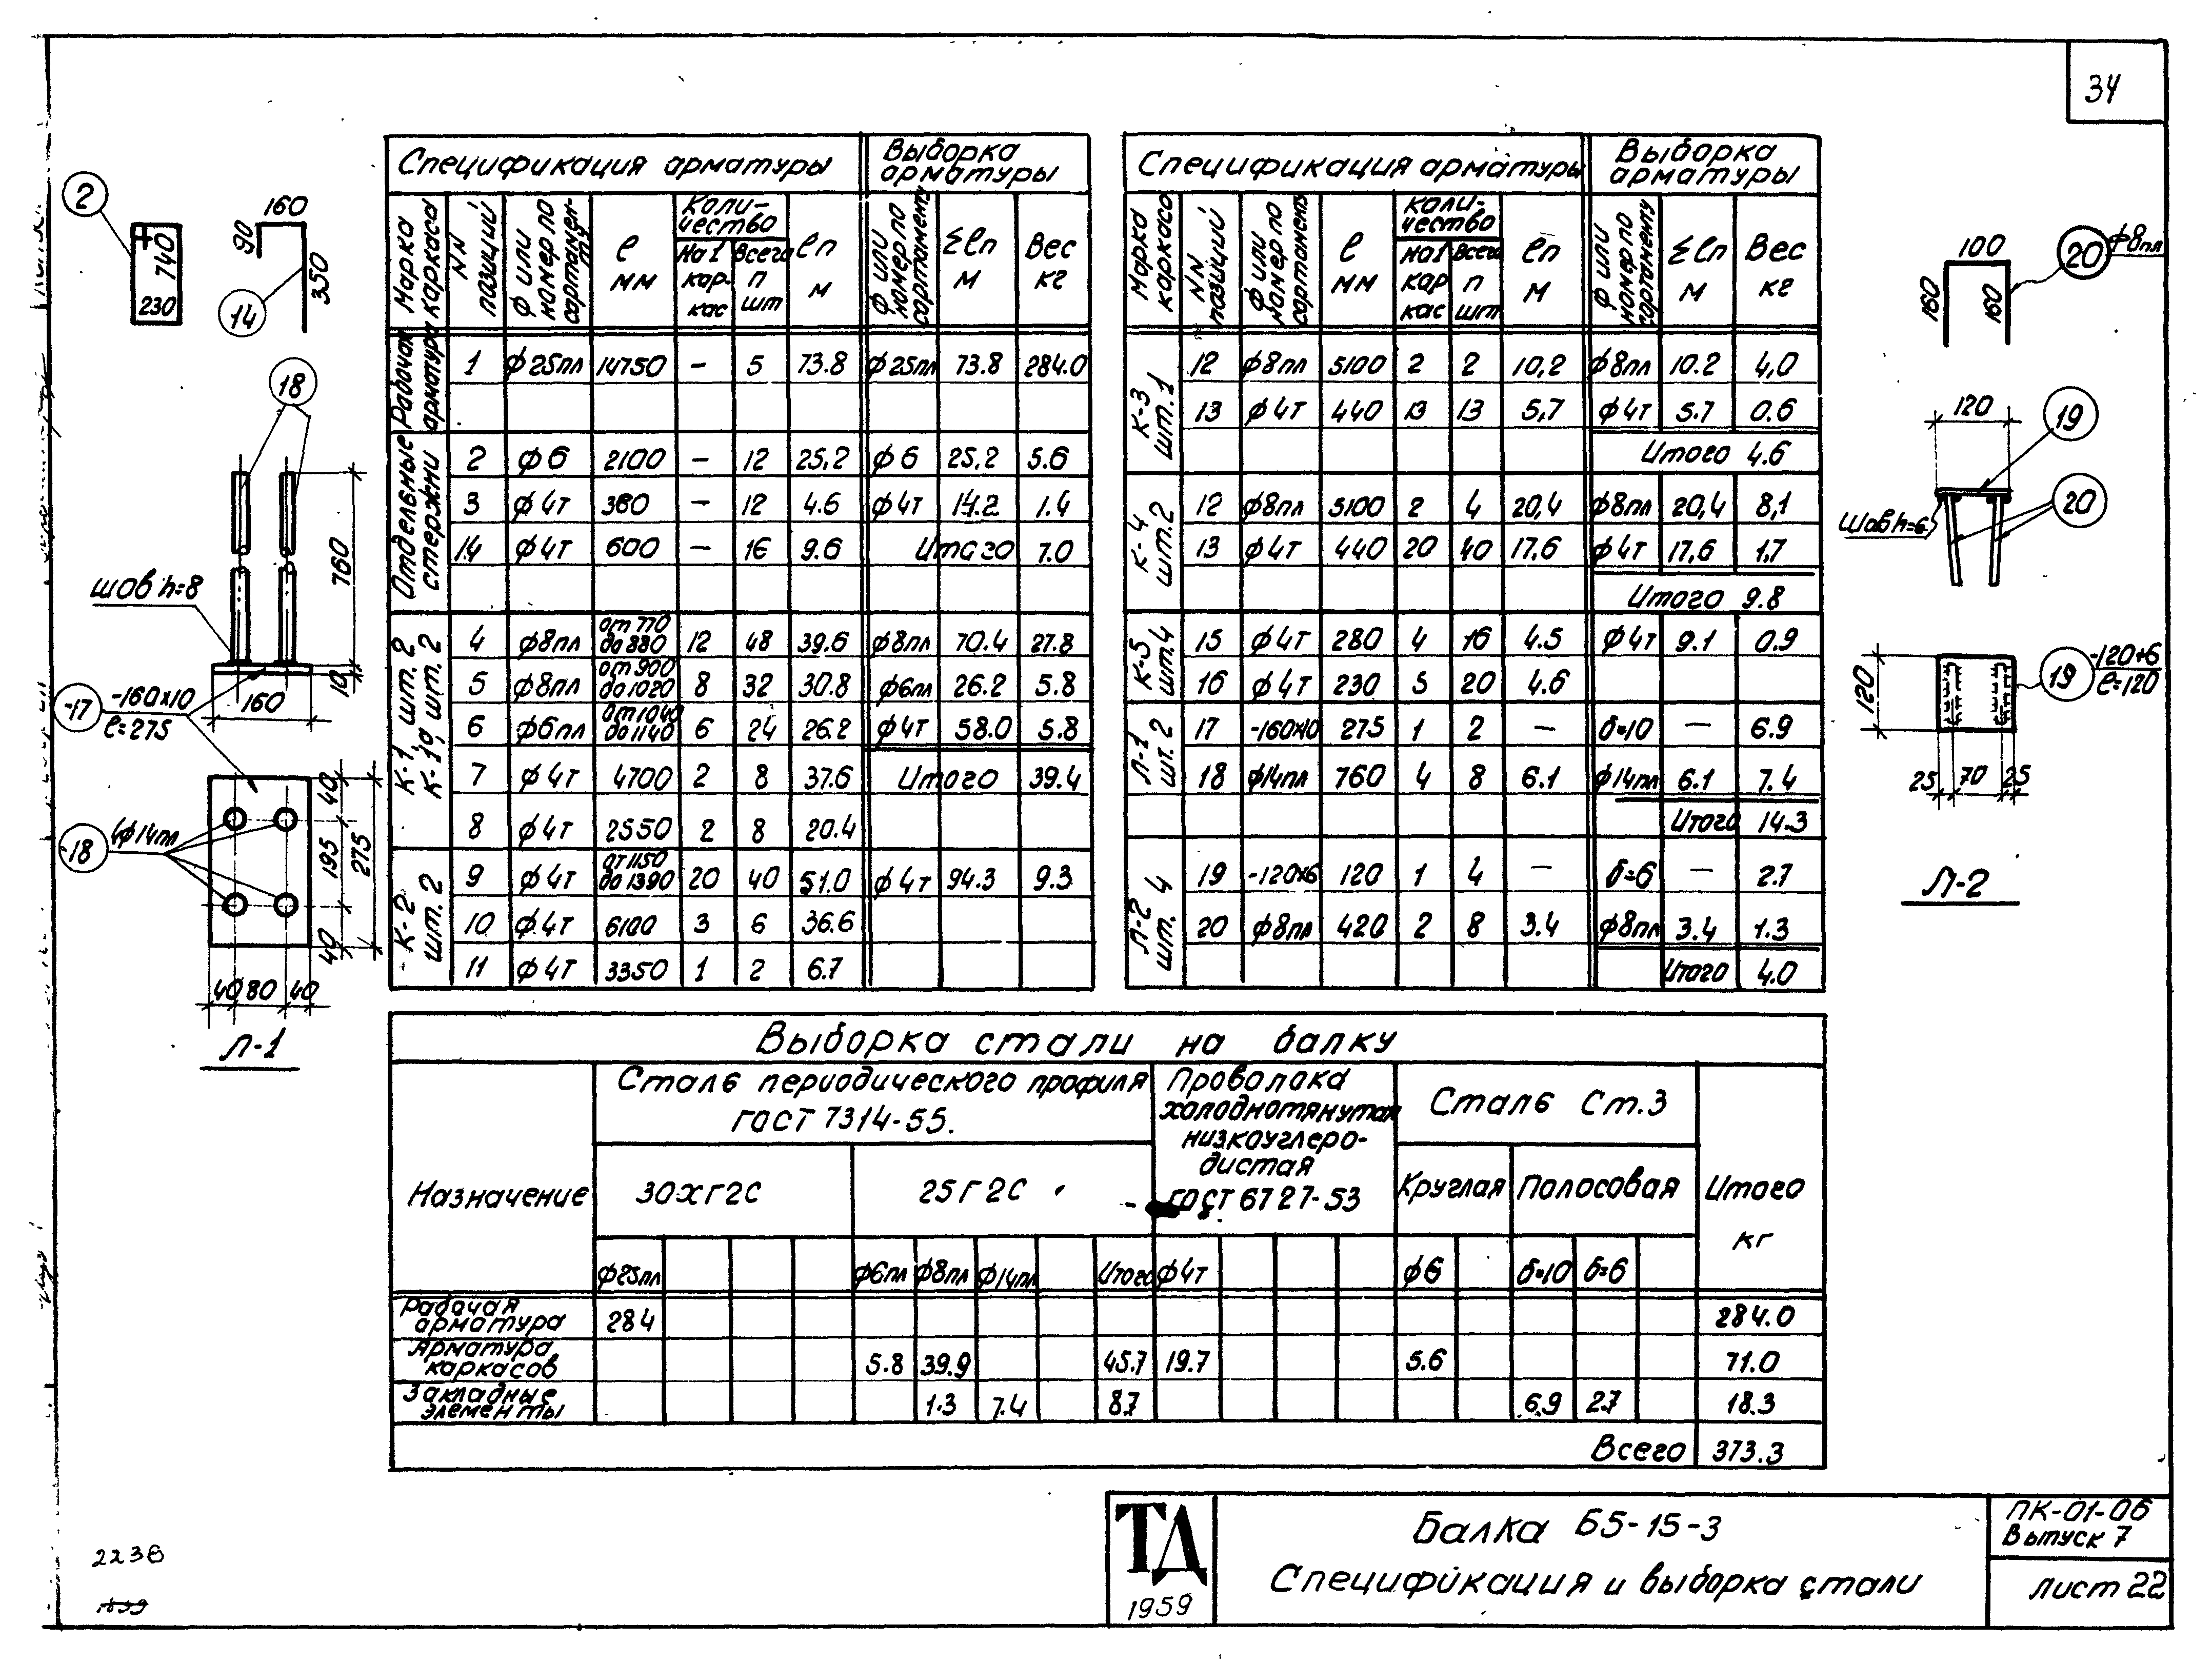 34
Спецификация арматуры
Выборка арматуры
Марка каркаса
NN позиций
ф или номер по сортаменту
ℓ мм
Количество
На 1 каркас
Всего n шт
ℓn м
ф или номер по сортаменту
Σℓn м
Вес кг
Рабочая арматура
1 ф25пл 14750 — 5 73.8 ф25пл 73.8 284.0
Отдельные стержни
2 ф6 2100 — 12 25.2 ф6 25.2 5.6
3 ф4т 380 — 12 4.6 ф4т 14.2 1.4
14 ф4т 600 — 16 9.6 Итого 7.0
К-1, шт. 2
К-1а, шт. 2
4 ф8пл от 770 до 880 12 48 39.6 ф8пл 70.4 27.8
5 ф8пл от 900 до 1020 8 32 30.8 ф6пл 26.2 5.8
6 ф6пл от 1040 до 1140 6 24 26.2 ф4т 58.0 5.8
7 ф4т 4700 2 8 37.6 Итого 39.4
8 ф4т 2550 2 8 20.4
К-2 шт. 2
9 ф4т от 1150 до 1390 20 40 51.0 ф4т 94.3 9.3
10 ф4т 6100 3 6 36.6
11 ф4т 3350 1 2 6.7
Спецификация арматуры
Выборка арматуры
Марка каркаса
NN позиций
ф или номер по сортаменту
ℓ мм
Количество
На 1 каркас
Всего n шт
ℓn м
ф или номер по сортаменту
Σℓn м
Вес кг
К-3 шт. 1
12 ф8пл 5100 2 2 10,2 ф8пл 10.2 4,0
13 ф4т 440 13 13 5,7 ф4т 5.7 0.6
Итого 4.6
К-4 шт. 2
12 ф8пл 5100 2 4 20,4 ф8пл 20,4 8,1
13 ф4т 440 20 40 17.6 ф4т 17,6 1.7
Итого 9.8
К-5 шт. 4
15 ф4т 280 4 16 4.5 ф4т 9.1 0.9
16 ф4т 230 5 20 4.6
Л-1 шт. 2
17 -160х10 275 1 2 — δ=10 — 6.9
18 ф14пл 760 4 8 6.1 ф14пл 6.1 7.4
Итого 14.3
Л-2 шт. 4
19 -120х6 120 1 4 — δ=6 — 2.7
20 ф8пл 420 2 8 3.4 ф8пл 3.4 1.3
Итого 4.0
2
740
230
160
90
350
14
18
760
шов h=8
10
160
17 -160х10
ℓ=275
18 4ф14пл
40
195
275
40
40 80 40
Л-1
100
20 ф8пл
160
160
120
19
20
Шов h=6
120
19 -120+6
ℓ=120
25 70 25
Л-2
Выборка стали на балку
Назначение
Сталь периодического профиля
ГОСТ 7314-55.
Проволока
холоднотянутая
низкоуглеро-
дистая
ГОСТ 6727-53
Сталь Ст.3
Итого
кг
30ХГ2С
25Г2С
Круглая
Полосовая
ф25пл ф6пл ф8пл ф14пл Итого ф4т ф6 δ=10 δ=6
Рабочая арматура 284 284.0
Арматура каркасов 5.8 39.9 45.7 19.7 5.6 71.0
Закладные элементы 1.3 7.4 8.7 6.9 2.7 18.3
Всего 373.3
ТД
1959
Балка Б5-15-3
Спецификация и выборка стали
ПК-01-06
Выпуск 7
лист 22
2238